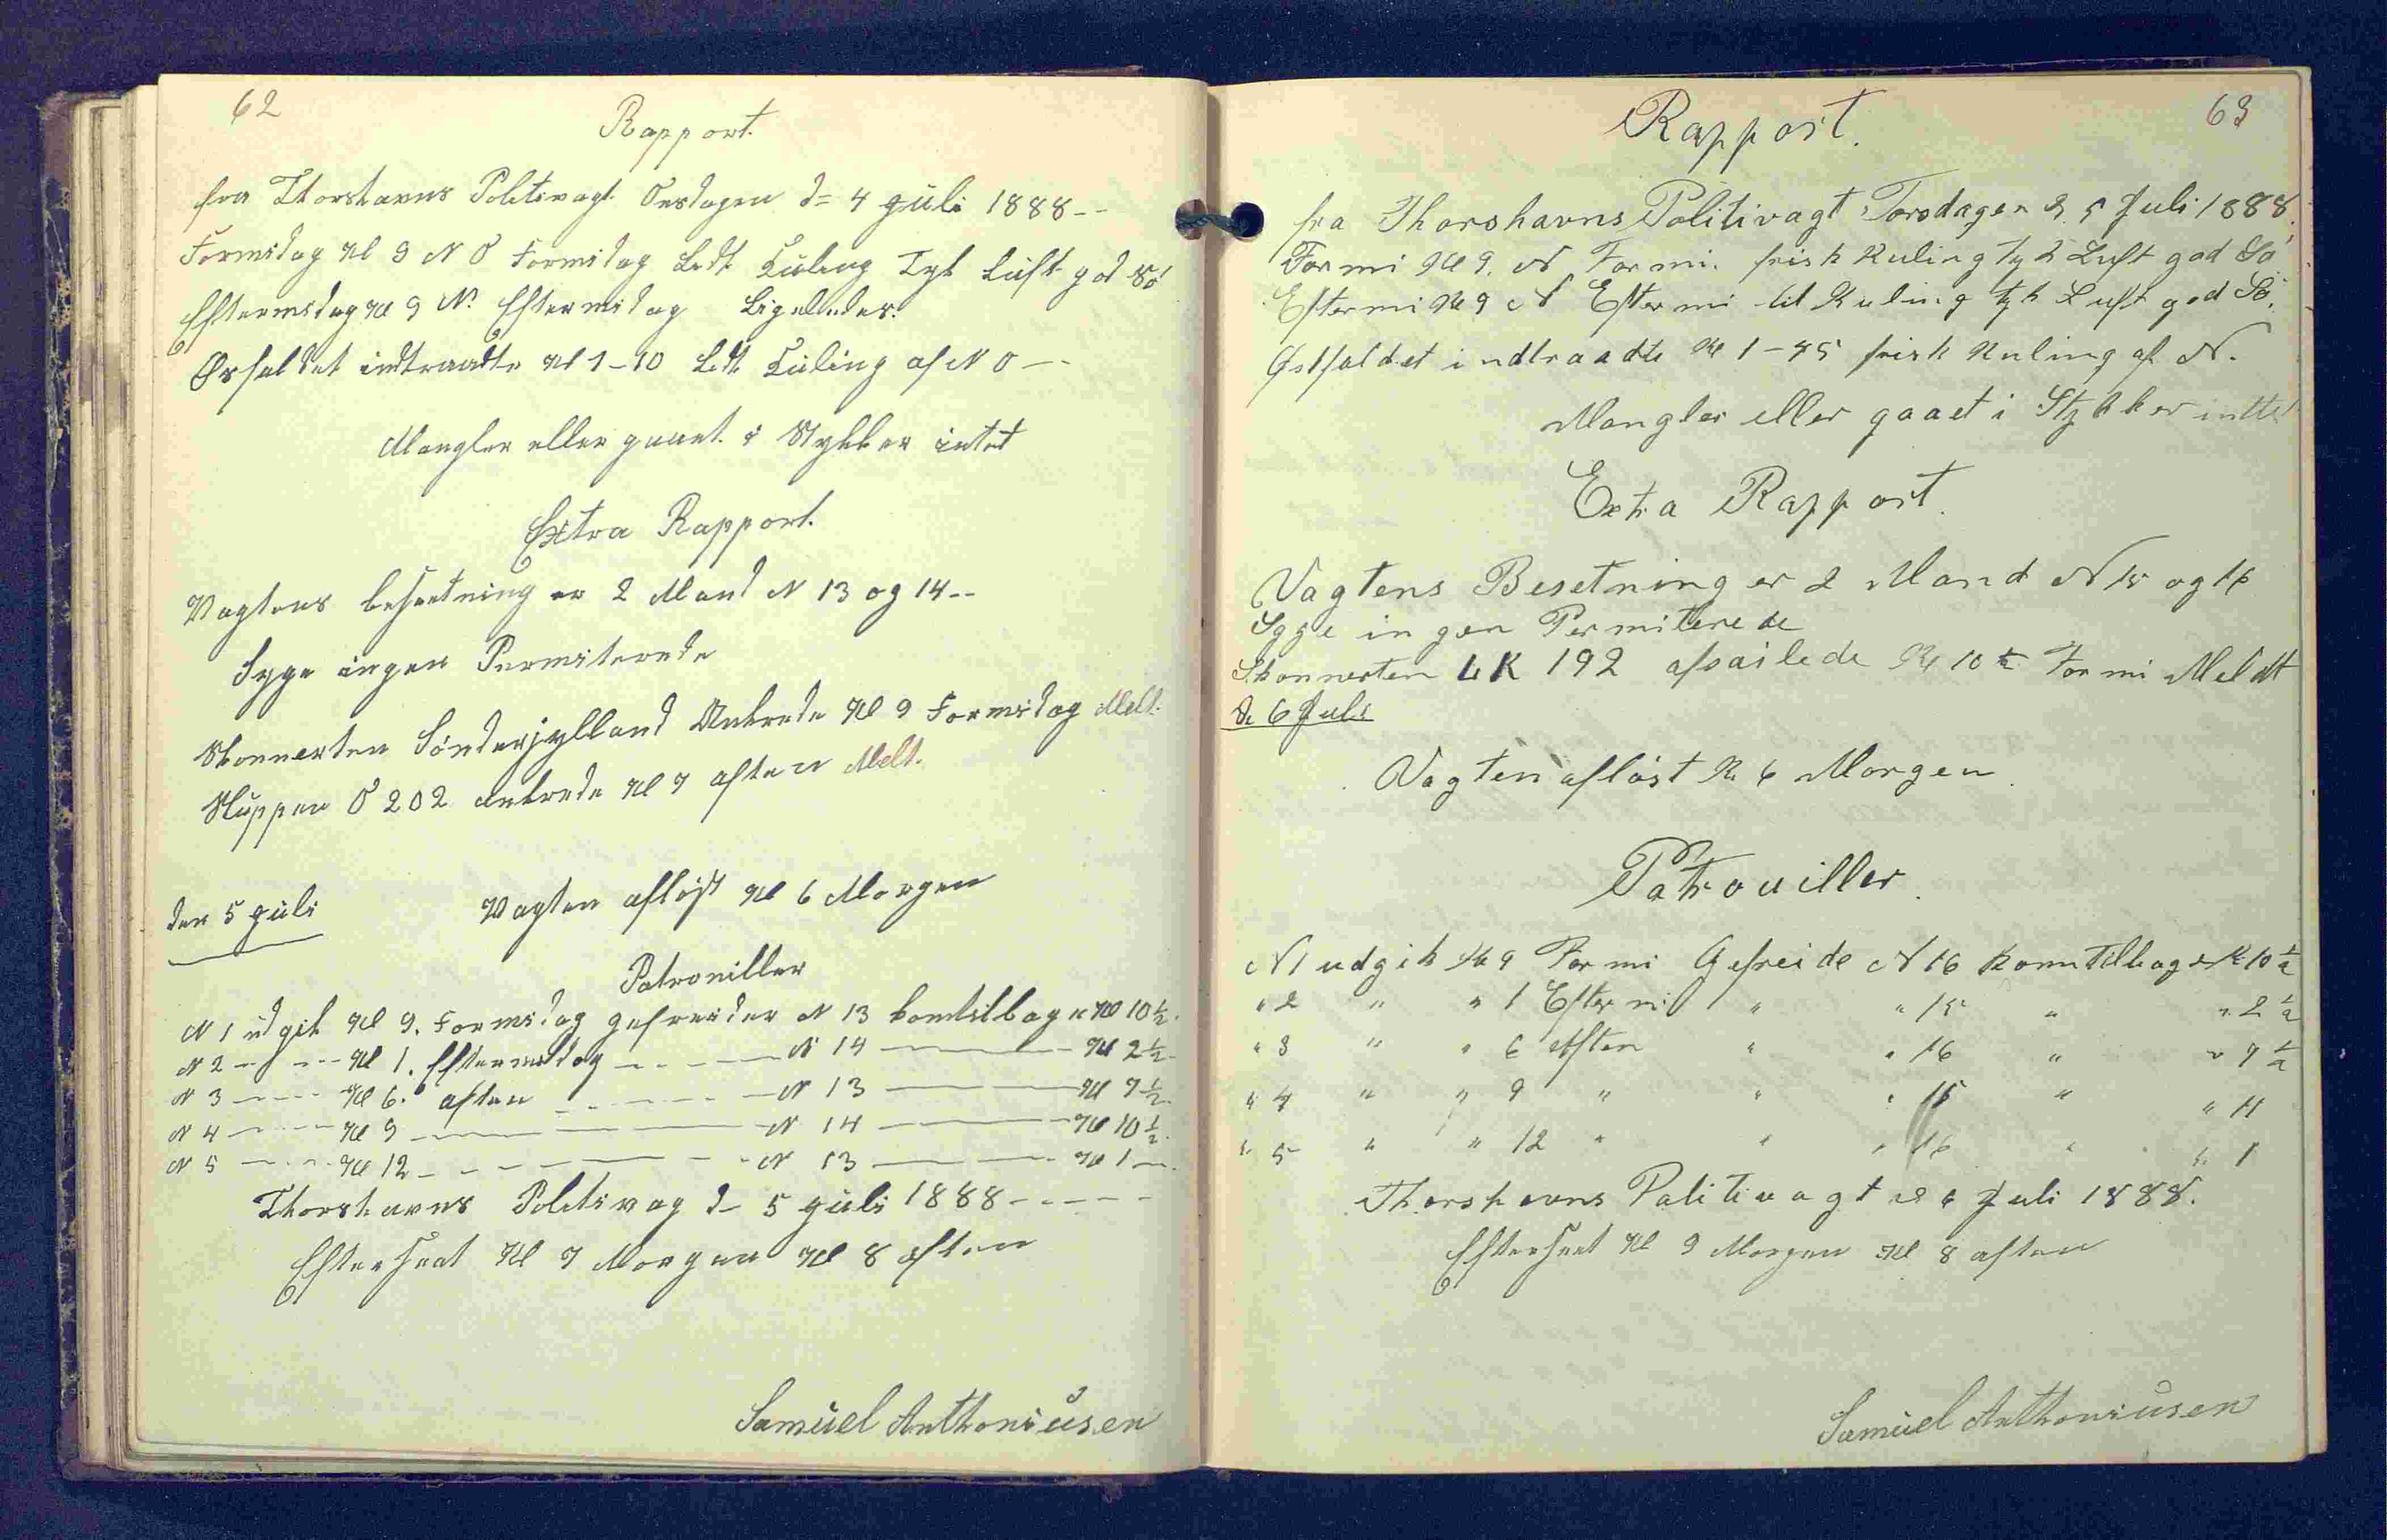 62
Rapport.
fra Thorshavns Politivagt Onsdagen d= 4 Juli 1888--
Formidag Kl 9 N O Formidag Ledt Kuling Tyk Luft god Sö
Eftermidag Kl 9 N. Eftermidag Ligeledes.
Østfaldet indtraadte Kl 1-10 Ledt Kuling af N O --
Mangler eller gaaet i Stykker intet
Extra Rapport.
Vagtens besætning er 2 Mand N 13 og 14--
Syge ingen Permiterede
Skonnerten Sönderjylland Ankrede Kl 9 Formidag Melt.
Sluppen O 202 ankrede Kl 7 aften Melt.
den 5 Juli Vagten aflöst Kl 6 Morgen
Patrouiller
N 1 udgik Kl 9. Formidag gefreider N 13 komtilbage Kl 10 1/2.
N 2 -- -- Kl 1. Eftermidag -- -- N 14 -- Kl 2 1/2
N 3 -- -- Kl 6. aften -- -- N 13 -- Kl 7 1/2.
N 4 -- -- Kl 9 -- -- N 14 -- Kl 10 1/2.
N 5 -- -- Kl 12 -- -- N 13 -- Kl 1 --.
Thorshavns Politivag d- 5 Juli 1888-----
Efterseet Kl 7 Morgen Kl 8 aften
Samuel Anthoniusen
63
Rapport.
fra Thorshavns Politivagt Torsdagen d. 5 Juli 1888.
Formi Kl 9. N Formi. frisk Kuling tyk Luft god Sö
Eftermi Kl 9 N Eftermi lit Kuling tyk Luft god Sö.
Østfaldet indtraadte Kl 1-45 frisk Kuling af N.
Mangler eller gaaet i Stykker inttet
Extra Rapport.
Vagtens Besetning er 2 Mand N 15 og 16
Syge ingen Permiterede
Skonnerten LK 192 afsailede Kl 10 Formi Meldt
d. 6 Juli
Vagten aflöst Kl 6 Morgen.
Patrouiller.
N 1 udgik Kl 9 Formi Gefreide N 16 Kom Tilbage Kl 10 1/2
" 2 " " 1 Eftermi " " 15 " " 2 1/2
" 3 " " 6 Aften " " 16 " " 7 1/2
" 4 " " 9 " " " 15 " " 11
" 5 " " 12 " " " 16 " " 1
Thorshavns Politivagt d 6 Juli 1888.
Efterseet Kl 9 Morgen Kl 8 aften
Samuel Anthoniusen